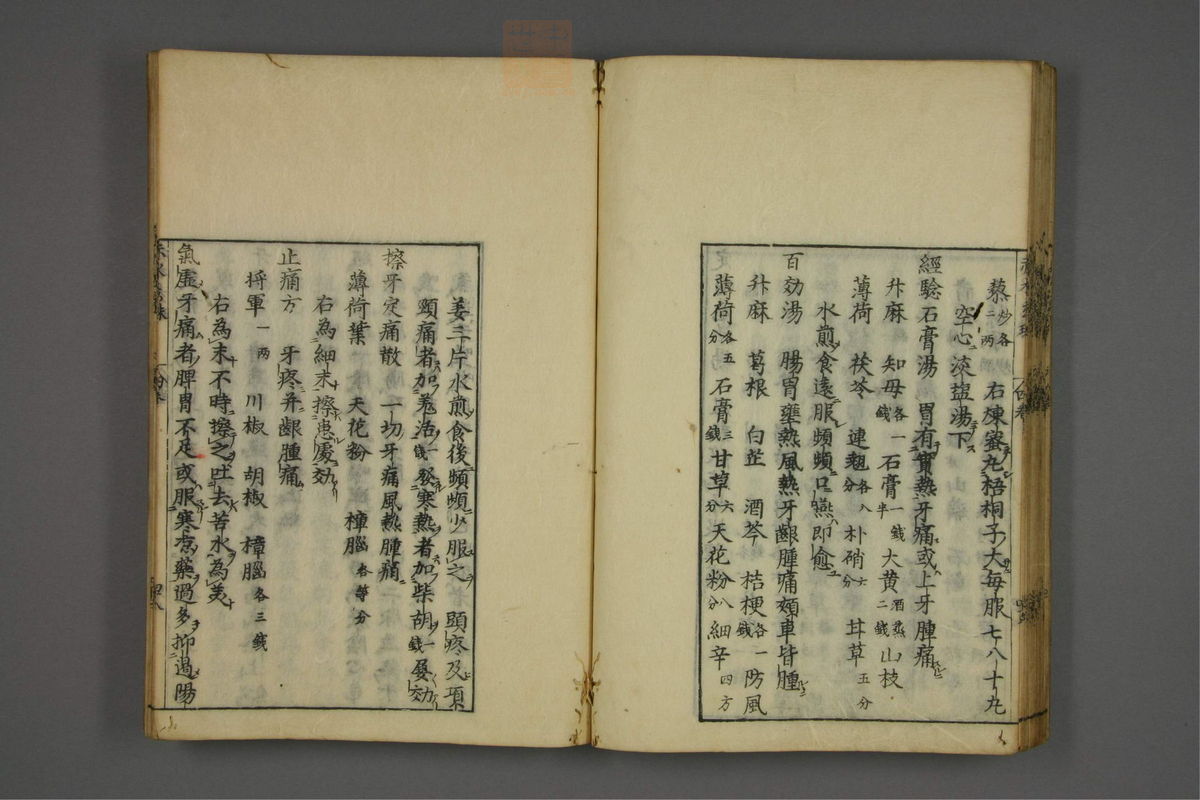 藜炒各二兩　右煉蜜丸梧桐子大每服七八十丸
空心淡盐湯下
經驗石膏湯　胃有實熱牙痛或上牙腫痛
升麻　知母各一錢　石膏一錢半　大黄酒蒸二錢　山枝
薄荷　茯苓　連翹各八分　朴硝六分　甘草五分
水煎食遠服頻頻口嚥即愈
百効湯　腸胃壅熱風熱牙齦腫痛頰車皆腫
升麻　葛根　白芷　酒芩　桔梗各一錢　防風
薄荷各五分　石膏三錢　甘草六分　天花粉八分　細辛四分
姜三片水煎食後頻頻少服之　頭疼及項
頸痛者加羗活一錢　發寒熱者加柴胡一錢屡効
擦牙定痛散　一切牙痛風熱腫痛
薄荷葉　天花粉　樟腦各等分
右為細末擦患處効
止痛方　牙疼并齦腫痛
将軍一兩　川椒　胡椒　樟腦各三錢
右為末不時擦之吐去苦水為美
氣虛牙痛者脾胃不足或服寒凉藥過多抑遏陽